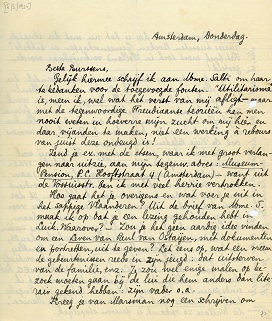 Amsterdam, Donderdag.
Beste Burssens,
Gelijk hiermee schrijf ik aan Mme. Salti om haar
te bedanken voor de toegevoegde fouten. "Utilitarisme"
is, meen ik, wel wat het verst van mij afligt
met de tegenwoordige Freudiaanse theorieën kan men
nooit weten in hoeverre mijn zucht om mij hier en
daar vijanden te maken, niet een werking à rebours
van juist deze ondeugd is!
Zend je ex. met de steen, waar ik met groot verlan-
gen naar uitzie, aan mijn tegenw. adres: Museum-
Pension, P.C. Hooftstraat 4 (Amsterdam) – want uit
de Vossiusstr. ben ik met veel herrie vertrokken.
Hoe gaat het je overigens en wat voer je uit in
het Vlaanderen? Uit de brief van Mme. S.
maak ik op dat je een lezing gehouden hebt in
Luik. Waarover? – Zou je het geen aardig idee vinden
om een Leven van Paul van Ostaijen, met documenten
en portretten, uit te geven? Let eens op, wat een
de gebeurtenissen reeds in zijn jeugd: dat uitsterven
van de familie, enz. Jij zou wel enige malen op be-
zoek moeten gaan bij de lui die hem anders dan lite-
rair gekend hebben: zijn vader o.a.
Kreeg je van Marsman nog een schrijven om